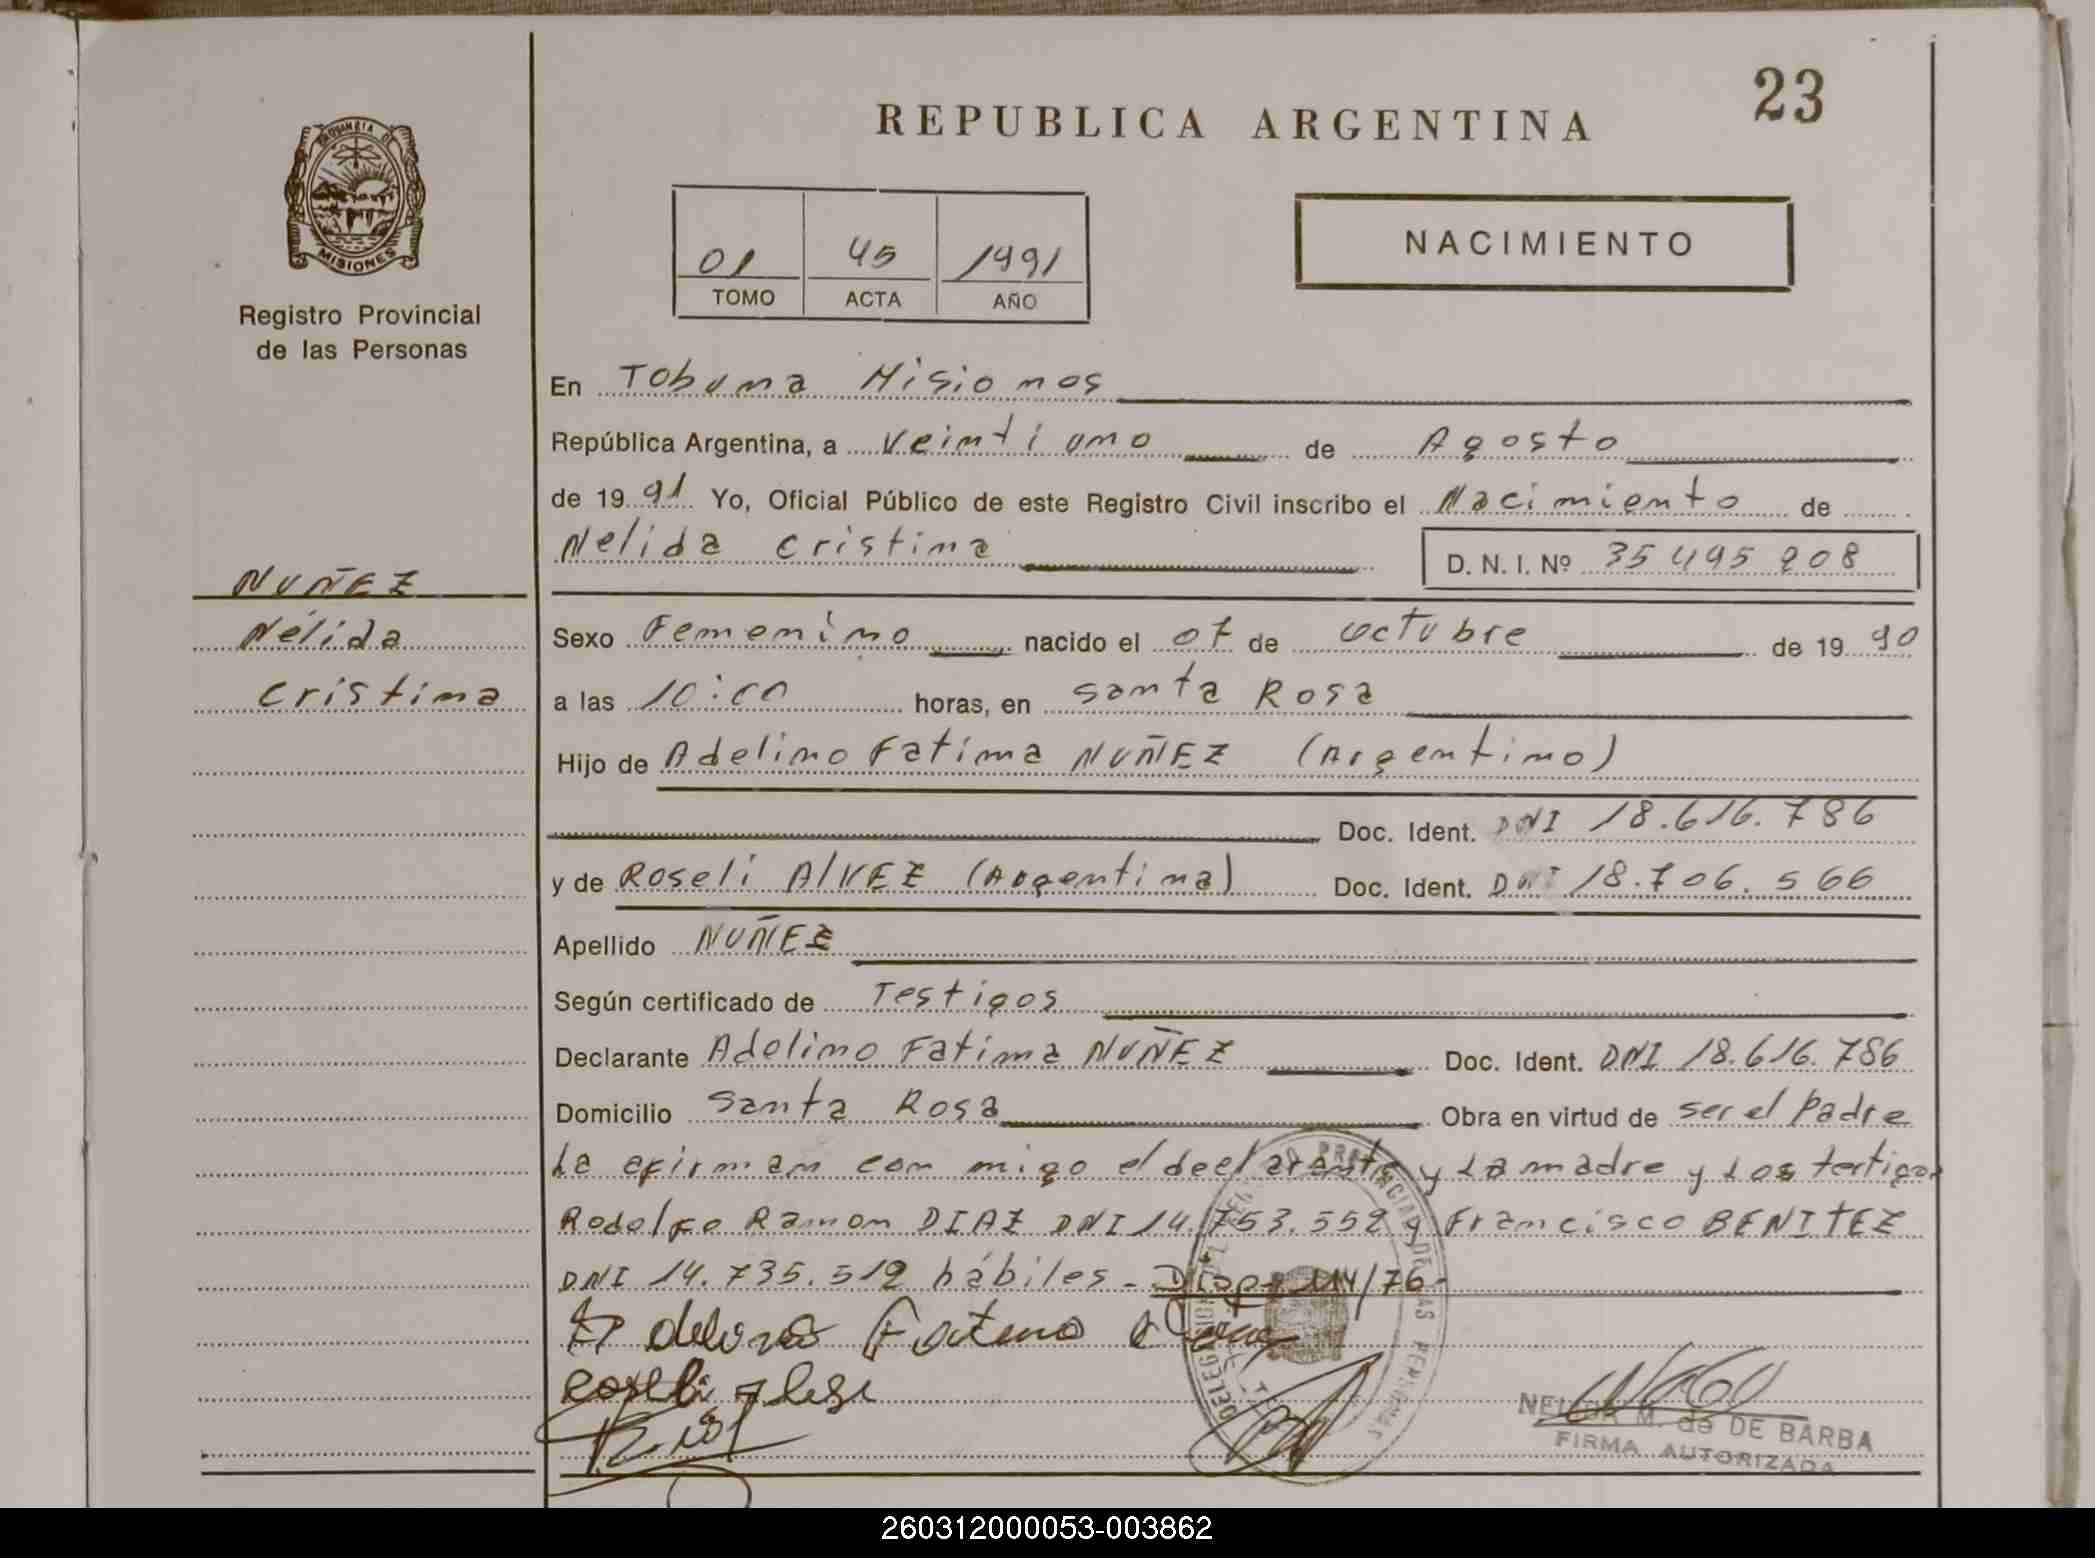 23
REPUBLICA ARGENTINA
PROVINCIA DE
MISIONES
Registro Provincial
de las Personas
01 45 1991
TOMO ACTA AÑO
NACIMIENTO
En Tobuna Misiones
República Argentina, a Veintiuno de Agosto
de 1991 Yo, Oficial Público de este Registro Civil inscribo el Nacimiento de
Nelida Cristina D. N. I. Nº 35 495 908
NUÑEZ
Nélida
Cristina
Sexo Femenino nacido el 07 de octubre de 1990
a las 10:00 horas, en Santa Rosa
Hijo de Adelino Fatima NUÑEZ (Argentino)
Doc. Ident. DNI 18.616.786
y de Roseli AlVEZ (Argentina) Doc. Ident. DNI 18.706.566
Apellido NUÑEZ
Según certificado de Testigos
Declarante Adelino Fatima NUÑEZ Doc. Ident. DNI 18.616.786
Domicilio Santa Rosa Obra en virtud de ser el Padre
La afirman con migo el declarante y La madre y Los testigos
Rodolfo Ramon DIAZ DNI 14.753.552 y Francisco BENITEZ
DNI 14.735.512 hábiles - Disp. 114/76-
NELIDA M. de DE BARBA
FIRMA AUTORIZADA
260312000053-003862